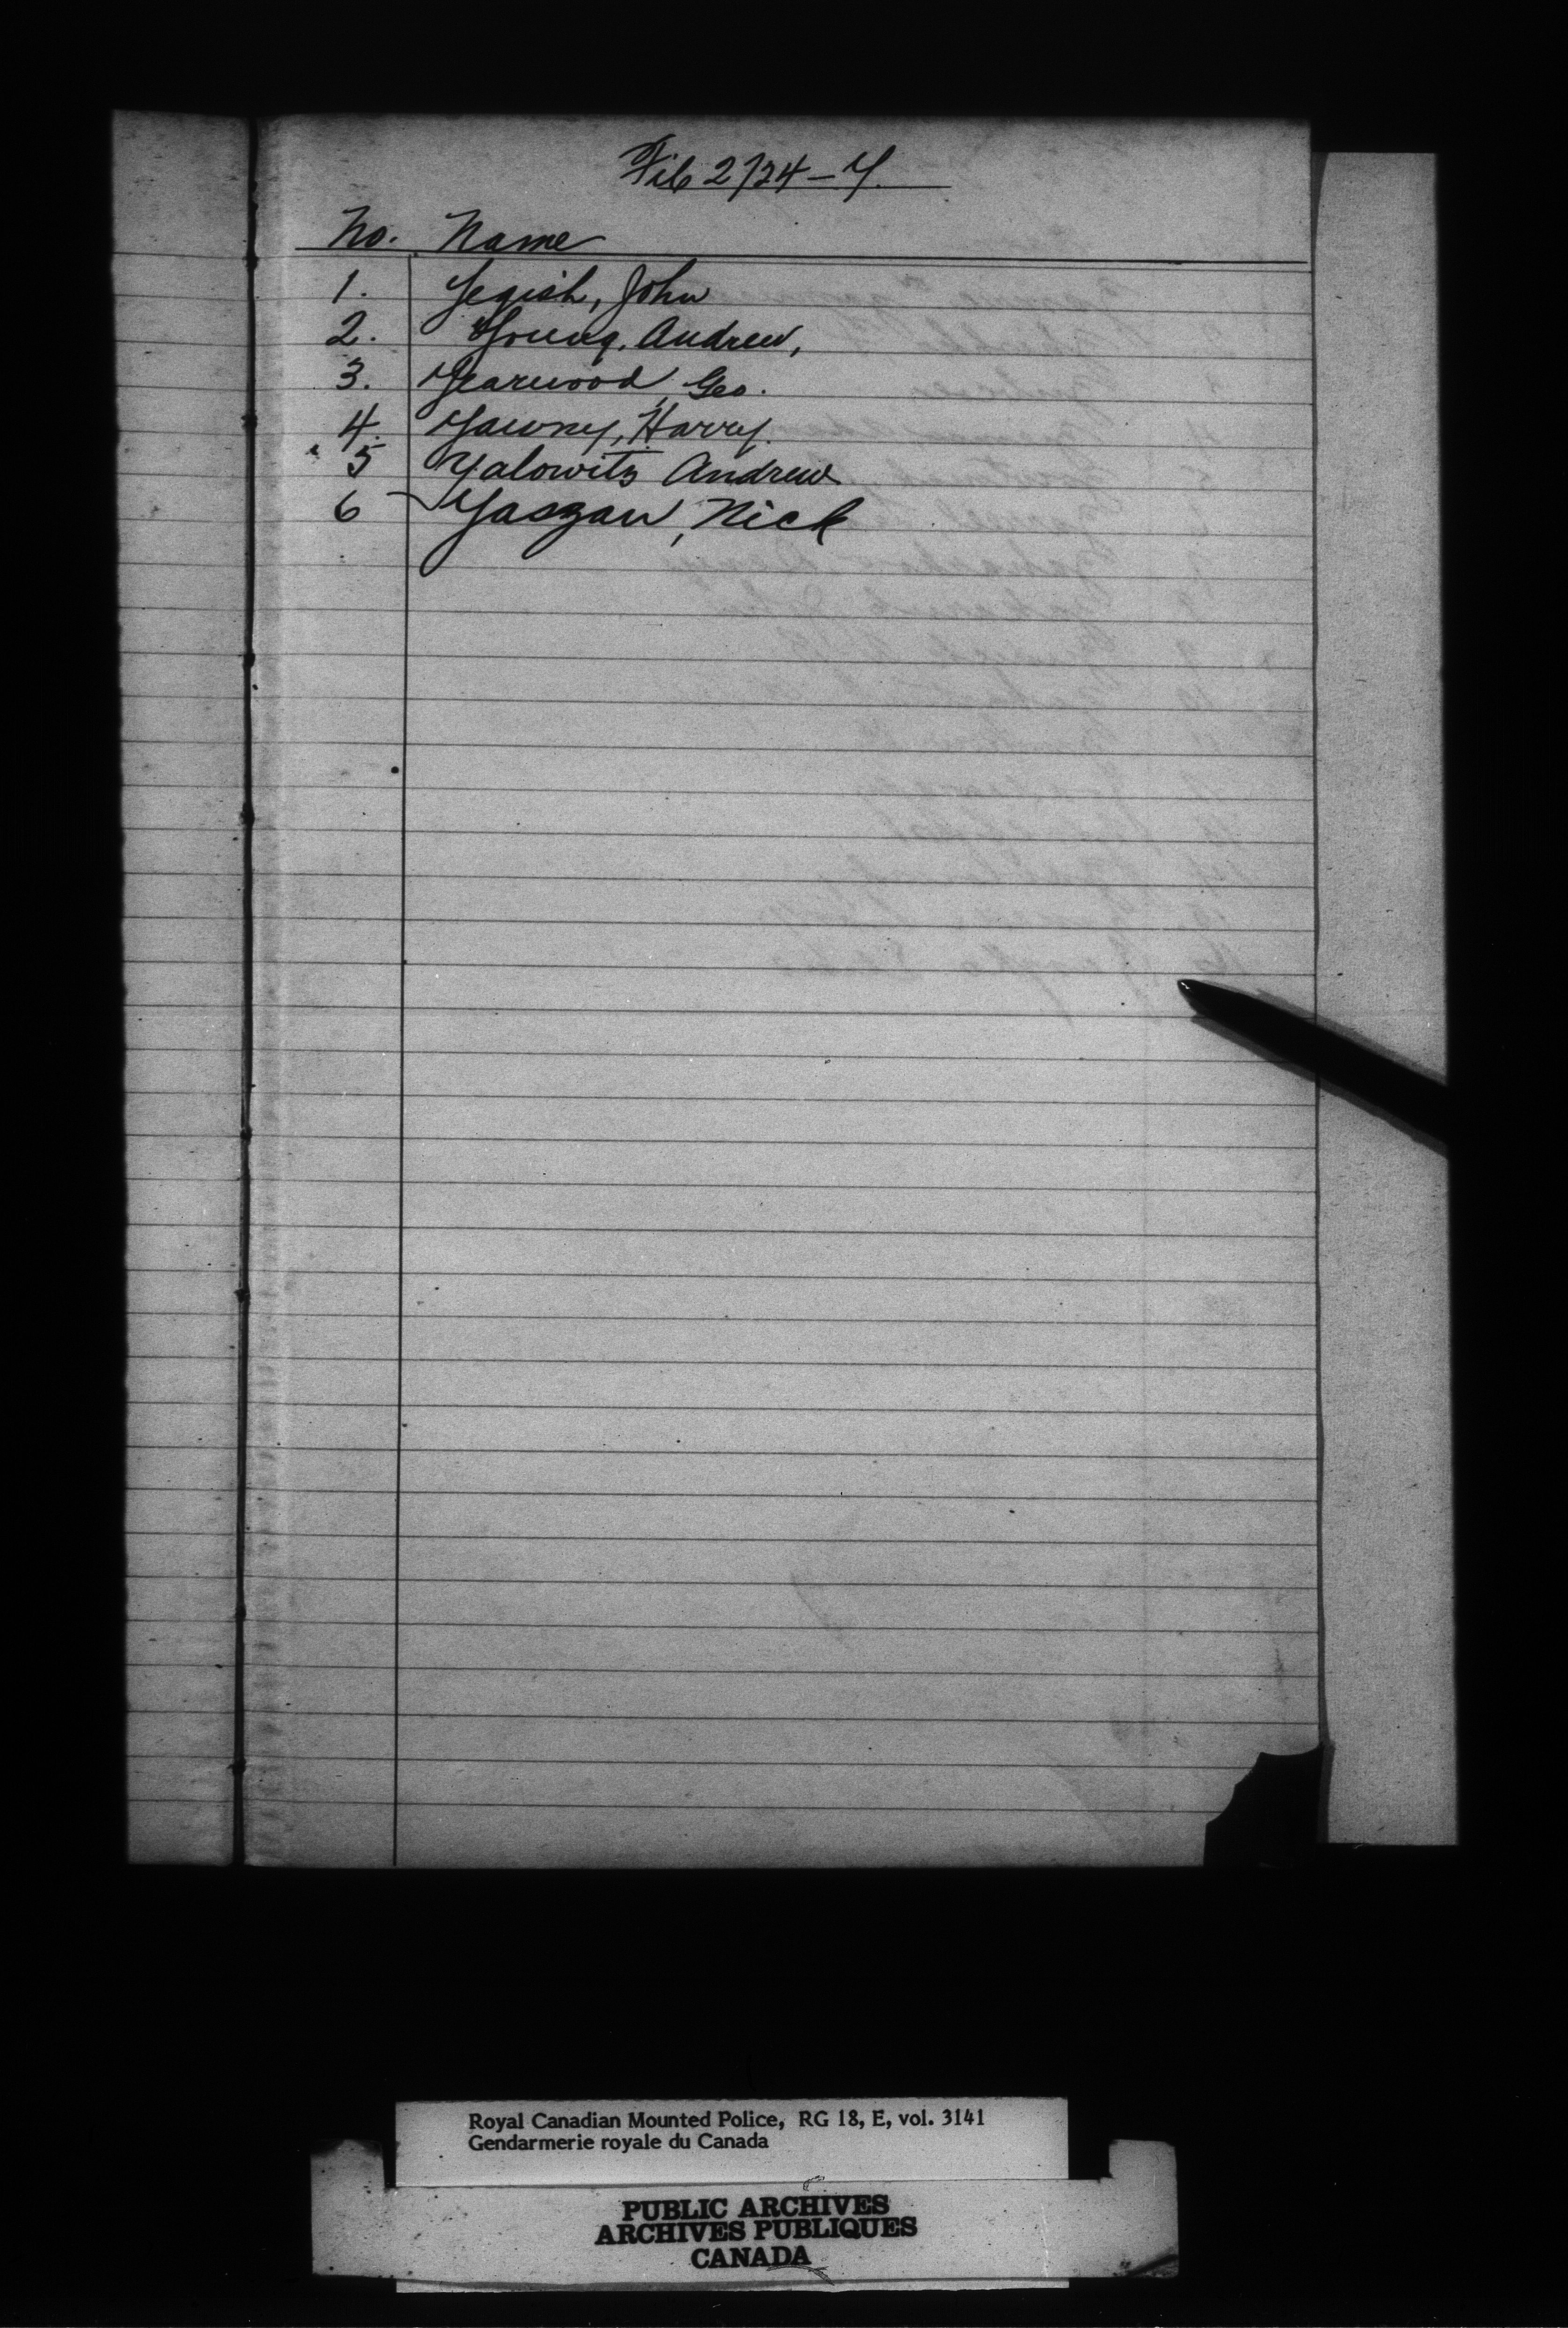 File 2/24-Y.
No. Name
1. Yegish, John
2. Young, Andrew,
3. Yearwood, Geo.
4. Yawny, Harry.
5 Yalowitz Andrew
6 Yaszan, Nick
Royal Canadian Mounted Police, RG 18, E, vol. 3141
Gendarmerie royale du Canada
PUBLIC ARCHIVES
ARCHIVES PUBLIQUES
CANADA